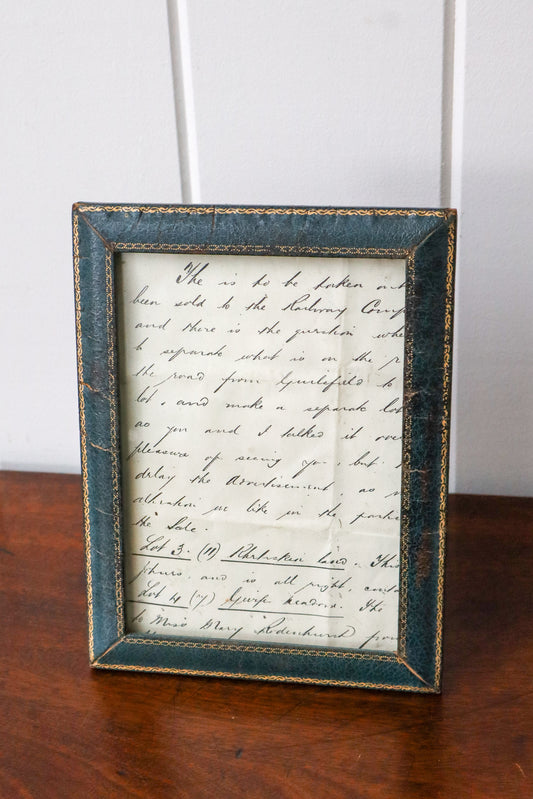 The is to be taken out
been sold to the Railway Comp
and there is the question whe
to separate what is on the r
the road from Guilsfield to
lot, and make a separate lot
as you and I talked it over
pleasure of seeing you, but
delay the Advertisement, as
alteration we like in the partic
the Sale.
Lot 3. land. This
and is all right, conta
Lot 4 meadow. The
to Miss Mary Rodenhurst from